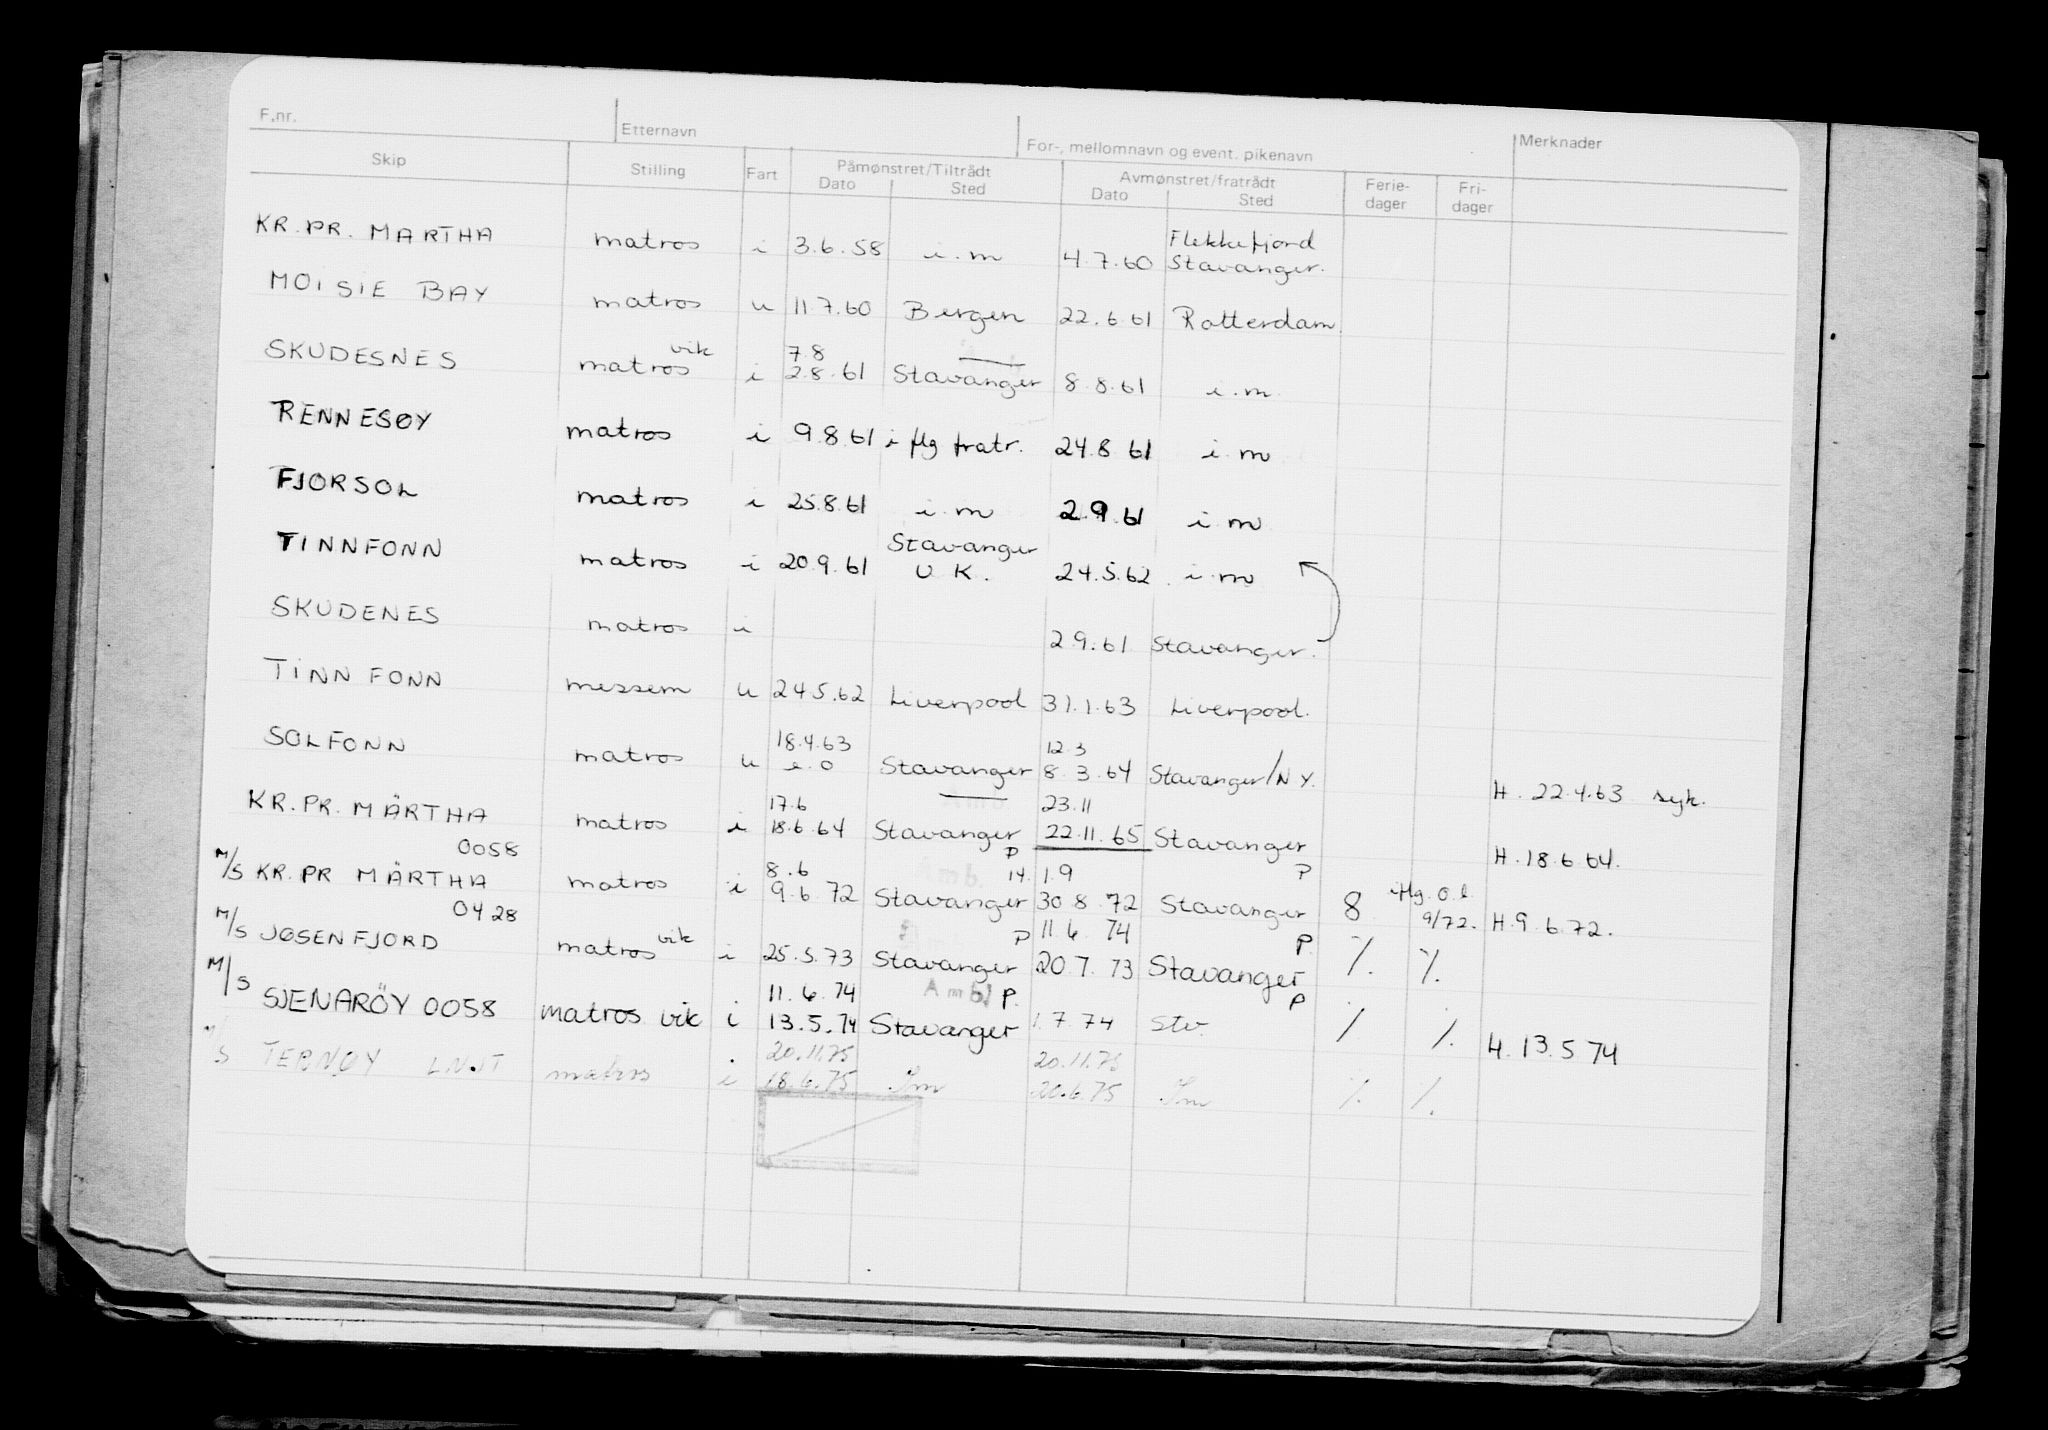 F.nr. Etternavn For-, mellomnavn og event. pikenavn Merknader
Skip Stilling Fart Påmønstret/Tiltrådt Avmønstret/fratrådt Ferie- Fri-
Dato Sted Dato Sted dager dager
Flekkefjord
KR. PR. MARTHA matros i 3.6.58 i.m 4.7.60 Stavanger.
MOISIE BAY matros u 11.7.60 Bergen 22.6.61 Rotterdam
vik 7.8
SKUDESNES matros i 2.8.61 Stavanger 8.8.61 i.m.
RENNESØY matros i 9.8.61 i flg fratr. 24.8.61 i.m
FJORSOL matros i 25.8.61 i.m 2.9.61 i.m
Stavanger
TINNFONN matros i 20.9.61 U.K. 24.5.62 i.m
SKUDENES matros i 2.9.61 Stavanger.
TINN FONN messem u 24.5.62 Liverpool 31.1.63 Liverpool.
18.4.63 12.3
SOLFONN matros u e.o Stavanger 8.3.64 Stavanger/N Y. H. 22.4.63 syk.
17.6 23.11
KR. PR. MÄRTHA matros i 18.6.64 Stavanger 22.11.65 Stavanger H. 18.6.64.
0058 8.6 P 14. 1.9 P
M/S KR. PR MÄRTHA matros i 9.6.72 Stavanger 30.8.72 Stavanger 8 iflg. O.l. 9/72. H. 9.6.72.
0428 vik P 11.6.74 P.
M/S JØSENFJORD matros i 25.5.73 Stavanger 20.7.73 Stavanger ⁒ ⁒
11.6.74 Amb P. P
M/S SJENARÖY 0058 matros vik i 13.5.74 Stavanger 1.7.74 Stv. ⁒ ⁒ H. 13.5 74
20.11.75 20.11.75
M/S TERNØY LNJT matros i 18.6.75 Im 20.6.75 Im ⁒ ⁒